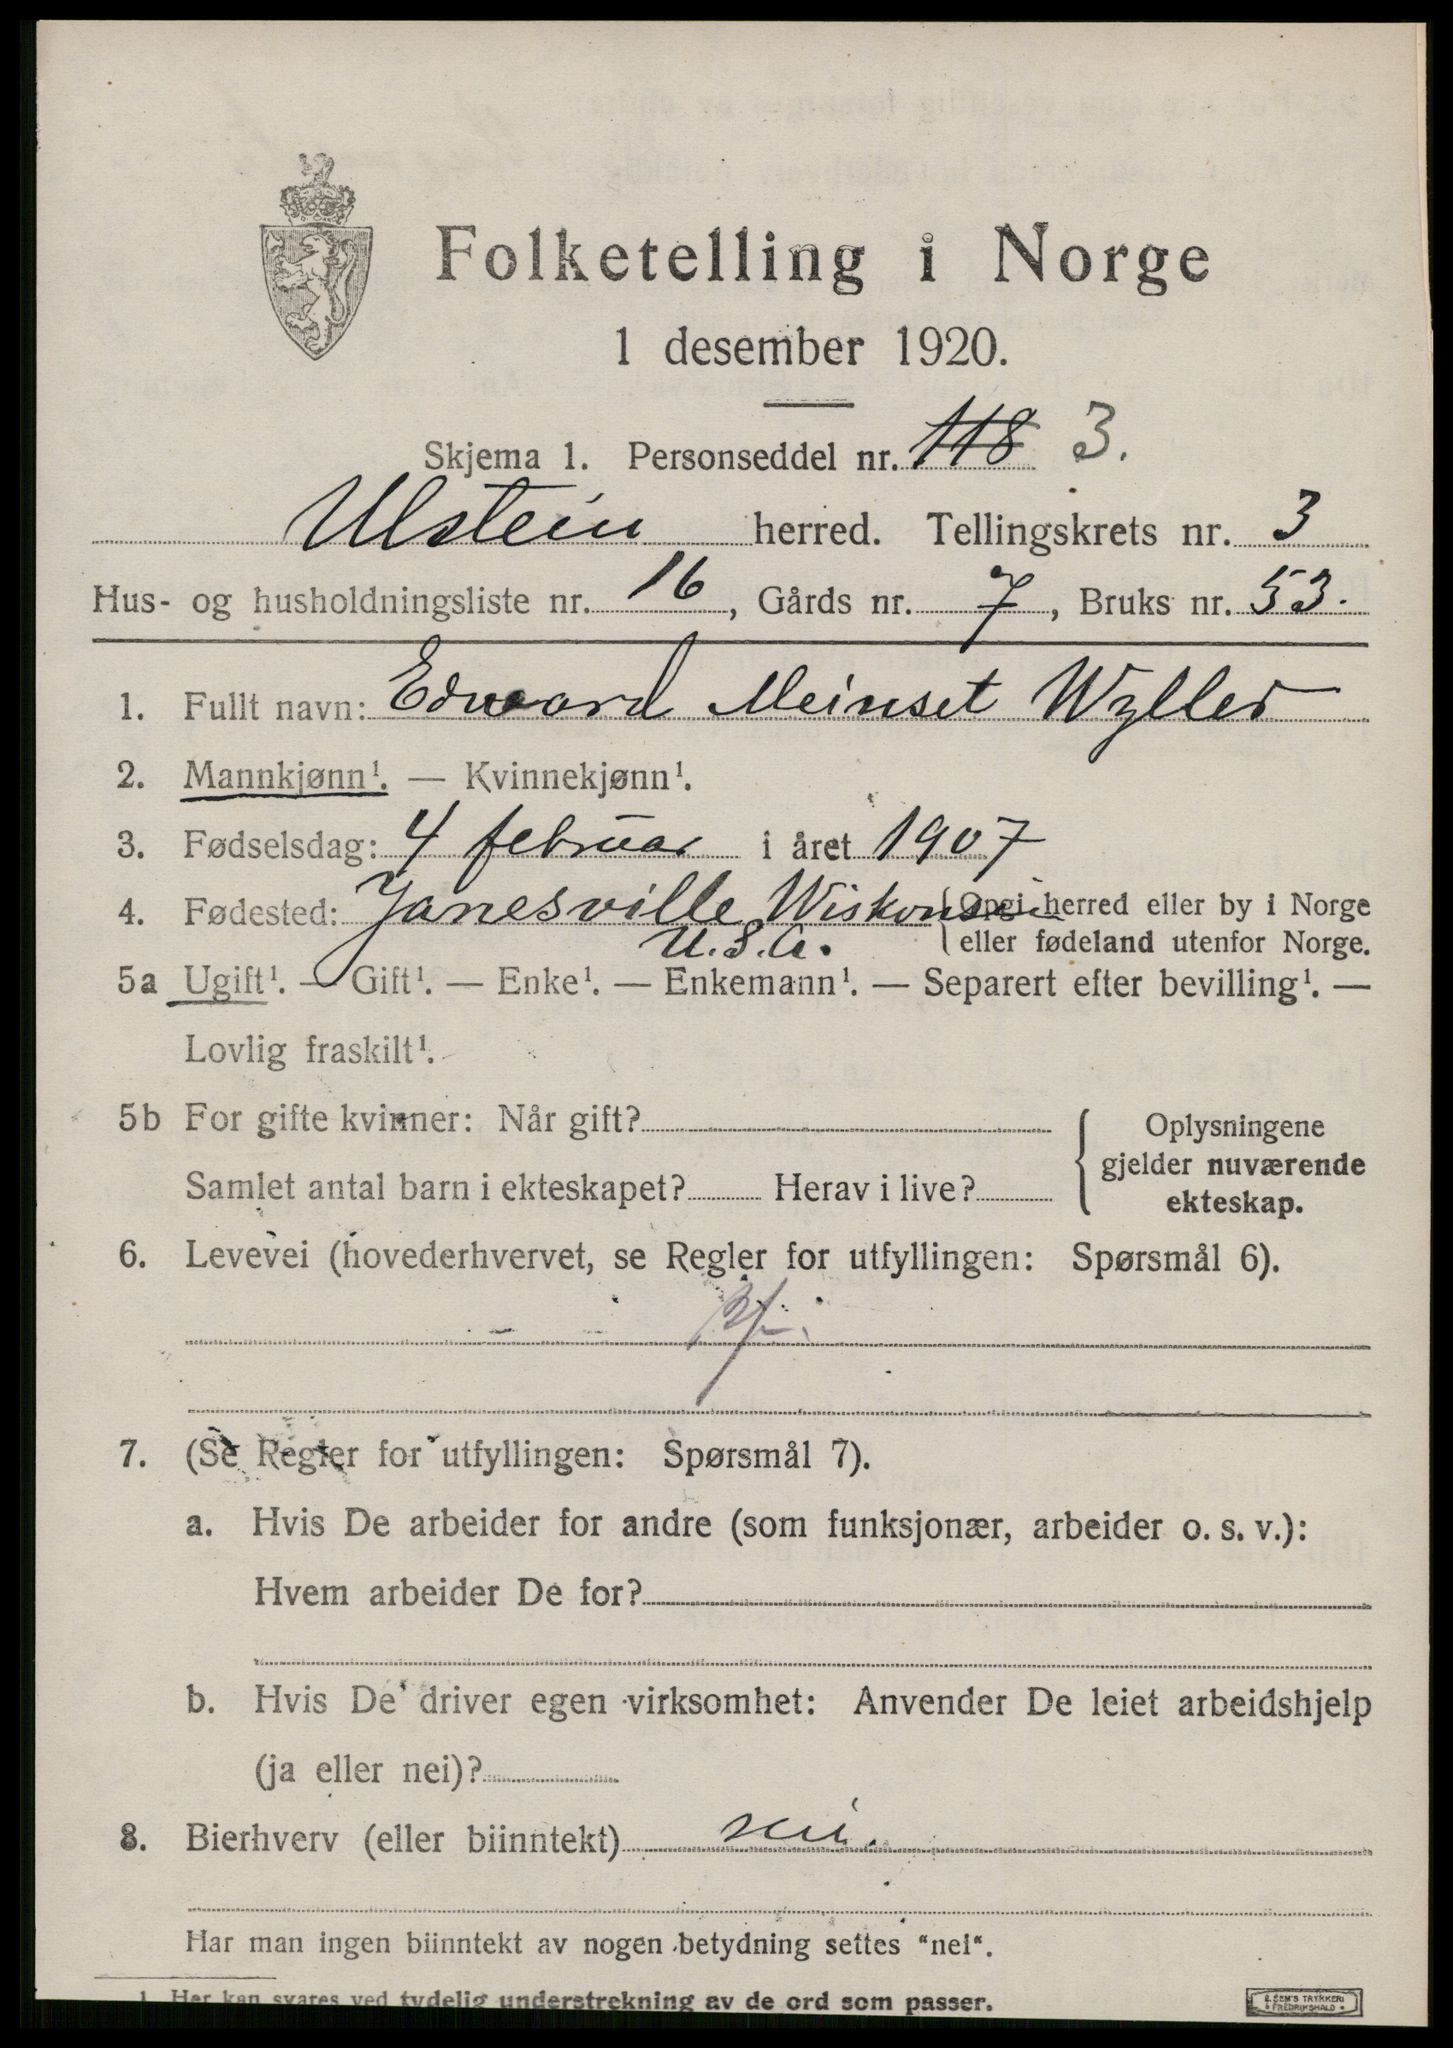 Folketelling i Norge
1 desember 1920.
Skjema 1. Personseddel nr. 118 3.
Ulstein herred. Tellingskrets nr. 3
Hus- og husholdningsliste nr. 16, Gårds nr. 7, Bruks nr. 53.
1. Fullt navn: Edvard Meinset Wyller
2. Mannkjønn¹. — Kvinnekjønn¹.
3. Fødselsdag: 4 februar i året 1907
4. Fødested: Janesville Wiskonsin {Opgi herred eller by i Norge
U.S.A. eller fødeland utenfor Norge.
5a Ugift¹. — Gift¹. — Enke¹. — Enkemann¹. — Separert efter bevilling¹. —
Lovlig fraskilt¹.
5b For gifte kvinner: Når gift? Oplysningene
gjelder nuværende
Samlet antal barn i ekteskapet? Herav i live? ekteskap.
6. Levevei (hovederhvervet, se Regler for utfyllingen: Spørsmål 6).
7. (Se Regler for utfyllingen: Spørsmål 7).
a. Hvis De arbeider for andre (som funksjonær, arbeider o. s. v.):
Hvem arbeider De for?
b. Hvis De driver egen virksomhet: Anvender De leiet arbeidshjelp
(ja eller nei)?
8. Bierhverv (eller biinntekt) nei.
Har man ingen biinntekt av nogen betydning settes "nei".
1. Her kan svares ved tydelig understrekning av de ord som passer.
E. SEM'S TRYKKERI
FREDRIKSHALD